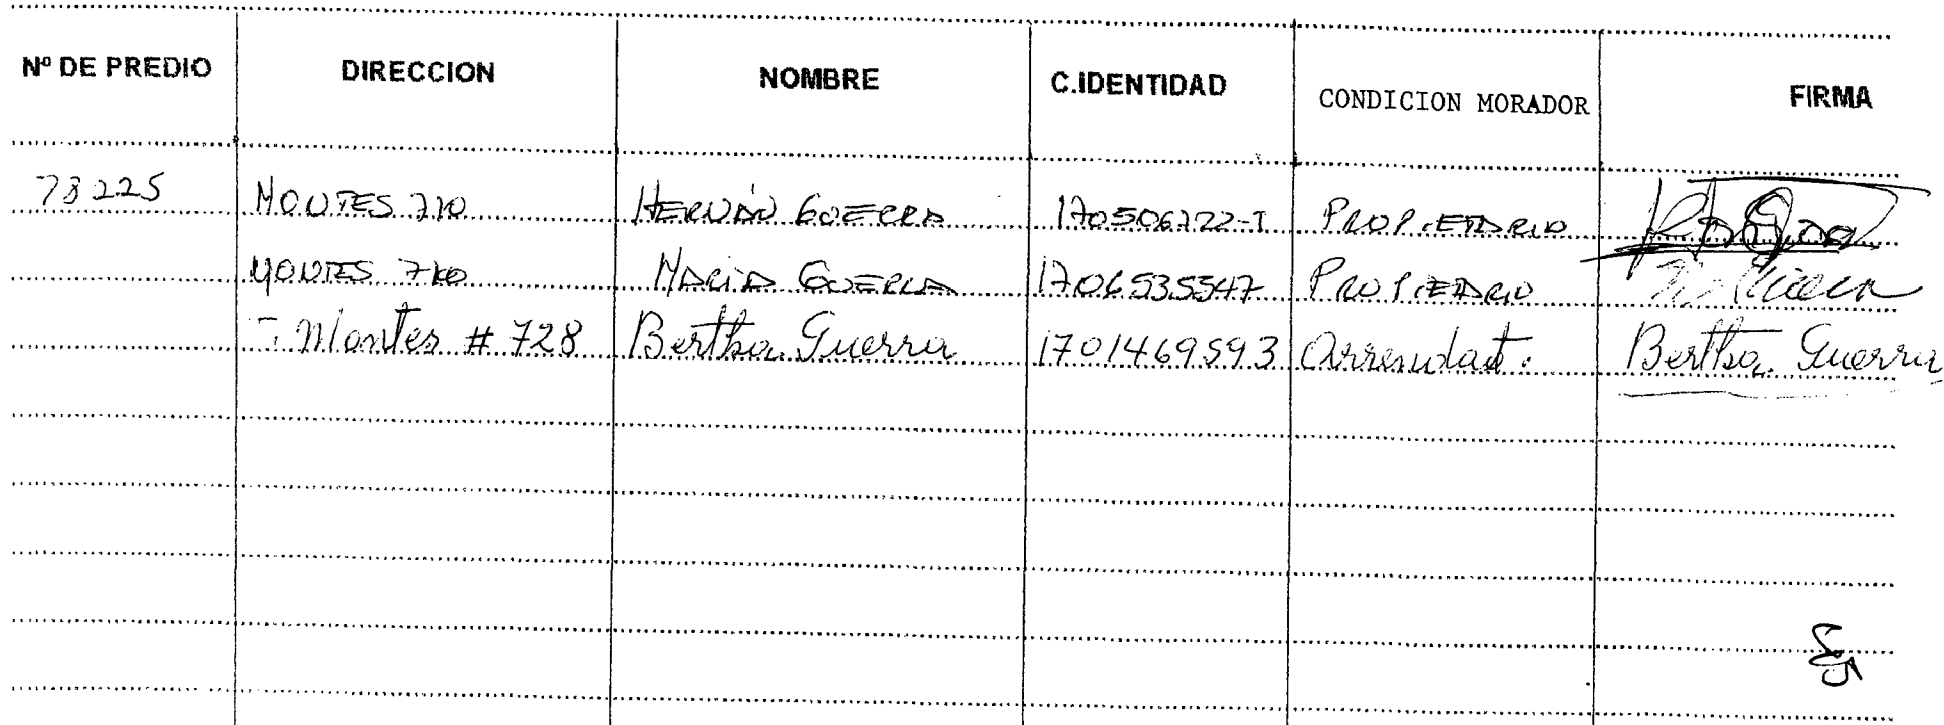 Nº DE PREDIO DIRECCION NOMBRE C.IDENTIDAD CONDICION MORADOR FIRMA
78225 MONTES 710 HERNÁN GUERRA 170506722-7 PROPIETARIO
MONTES 710 MARIA GUERRA 1706535547 PROPIETARIO
Montes # 728 Bertha Guerra 1701469593 Arrendat. Bertha Guerra